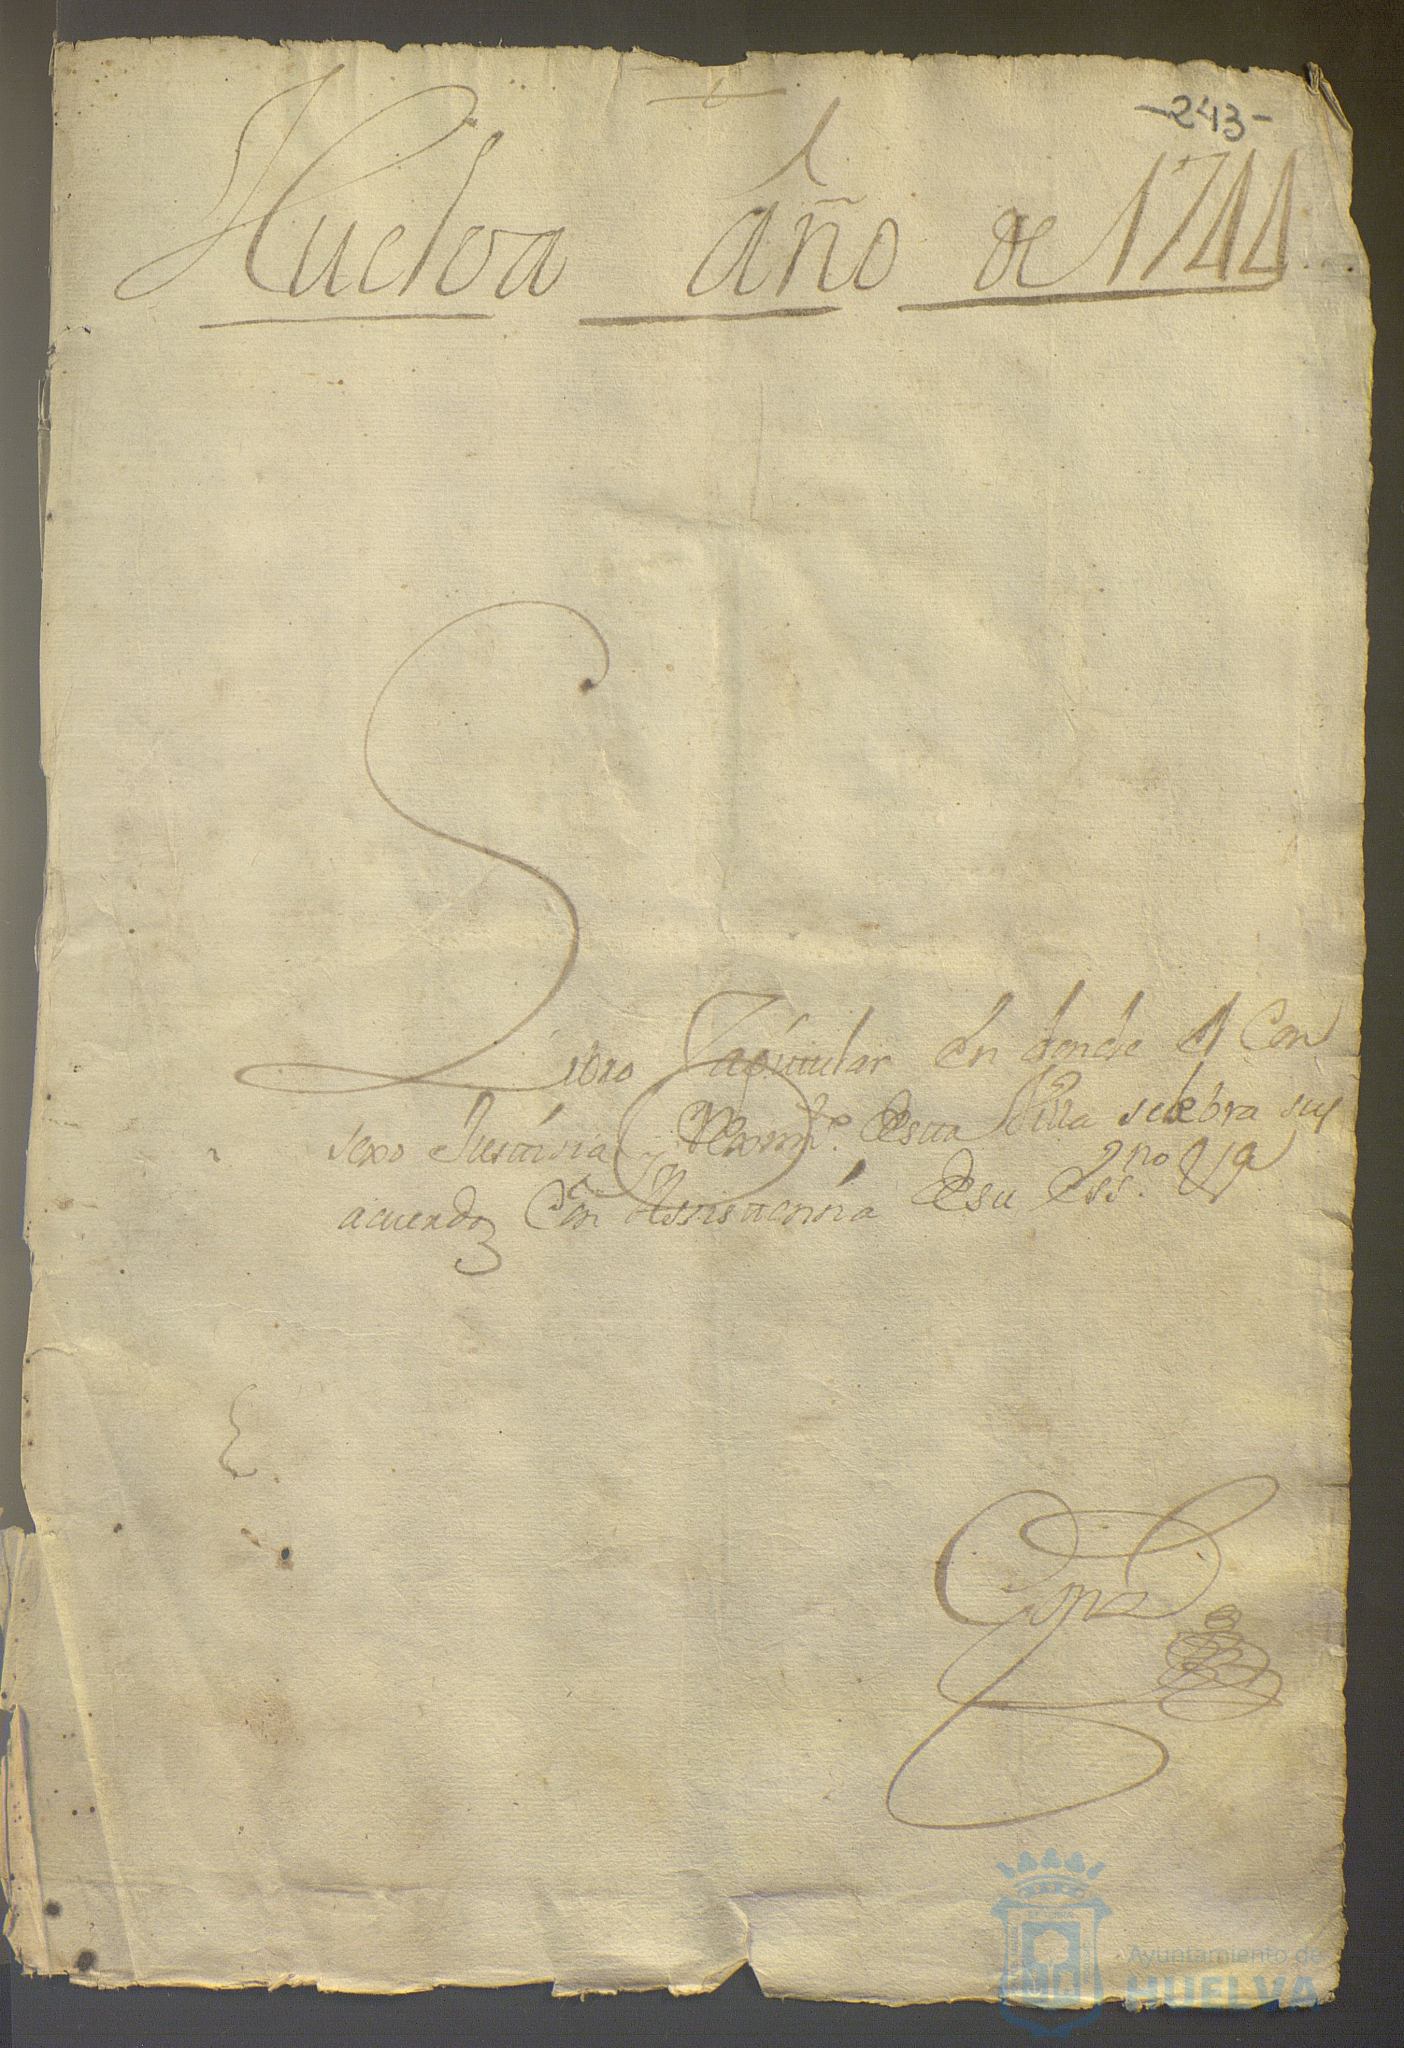 -243-
Huelva año de 1744
Libro Capitular En donde el Con
sexo Justisia Reximto. Desta Villa selebra sus
acuerdos Con Assistensia De su Essno
Ayuntamiento de
HUELVA